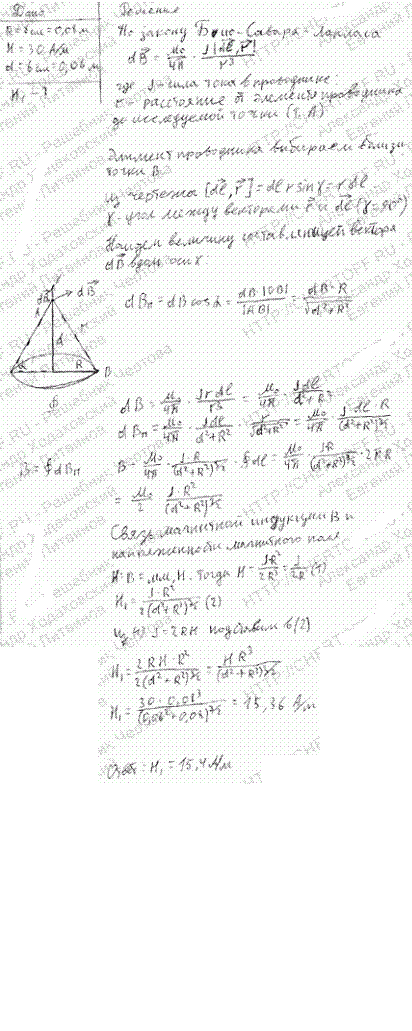 Дано
R = 8 см = 0,08 м
H = 30 А/м
d = 6 см = 0,06 м
H₁ - ?
Решение
По закону Био-Савара-Лапласа
dB⃗ = μ₀/4π · I[dl⃗, r⃗]/r³
где I - сила тока в проводнике;
r - расстояние от элемента проводника
до исследуемой точки (т. А)
Элемент проводника выбираем вблизи
точки В.
из чертежа [dl⃗, r⃗] = dl r sin γ = r dl
γ - угол между векторами r⃗ и dl⃗ (γ = 90°)
Найдем величину составляющей вектора
dB⃗ вдоль оси X
dBₙ = dB cos α = dB·|OB|/|AB| = dB·R/√(d²+R²)
dB = μ₀/4π · I r dl/r³ = μ₀/4π · I dl/(d²+R²)
dBₙ = μ₀/4π · I dl/(d²+R²) · R/√(d²+R²) = μ₀/4π · I dl R/(d²+R²)^(3/2)
B = ∮ dBₙ
B = μ₀/4π · I·R/(d²+R²)^(3/2) · ∮ dl = μ₀/4π · IR/(d²+R²)^(3/2) · 2πR
= μ₀/2 · I·R²/(d²+R²)^(3/2)
Связь магнитной индукции B и
напряженности магнитного поля
H: B = μμ₀H. тогда H = IR²/2R³ = I/2R (1)
H₁ = I·R²/2(d²+R²)^(3/2) (2)
из (1) I = 2RH подставим в (2)
H₁ = 2RH·R²/2(d²+R²)^(3/2) = HR³/(d²+R²)^(3/2)
H₁ = 30·0,08³/(0,06²+0,08²)^(3/2) = 15,36 А/м
Ответ: H₁ = 15,4 А/м